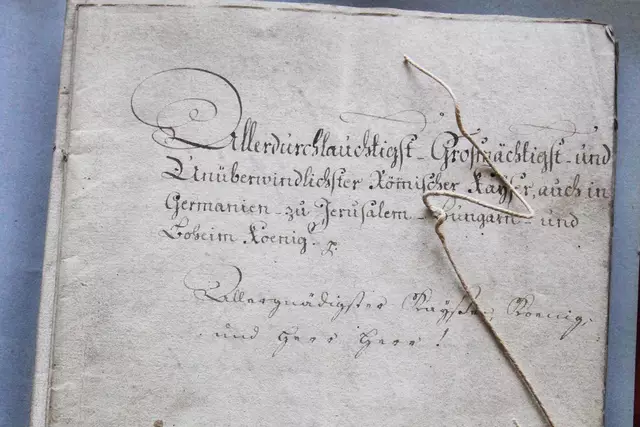 Allerdurchlauchtigst-Grosmächtigst-und
Unüberwindlichster Römischer Kayser, auch in
Germanien-zu Jerusalem-Hungarn-und
Boheim Koenig.
Allergnädigster Kayser, Koenig,
und Herr Herr!